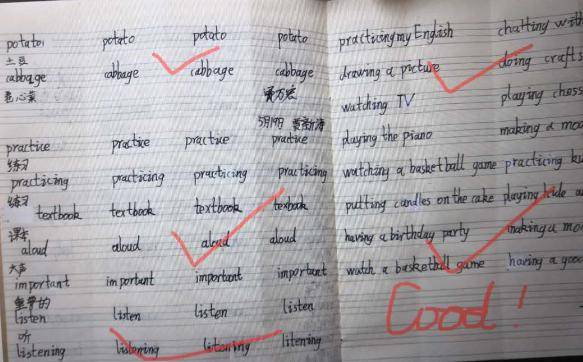 potato potato potato potato
土豆
cabbage cabbage cabbage cabbage
卷心菜
5月19日
practice practice practice practice
练习
practicing practicing practicing practicing
练习
textbook textbook textbook texbook
课本
aloud aloud aloud aloud
大声
important important important important
重要的
listen listen listen listen
听
listening listening litening litening
practicing my English chatting with
drawing a picture doing crafts
watching TV playing chess
playing the piano making a mo
watching a basketball game practicing ku
putting candles on the cake playing hide a
having a birthday party making a mo
watch a basketball game having a good
Good!